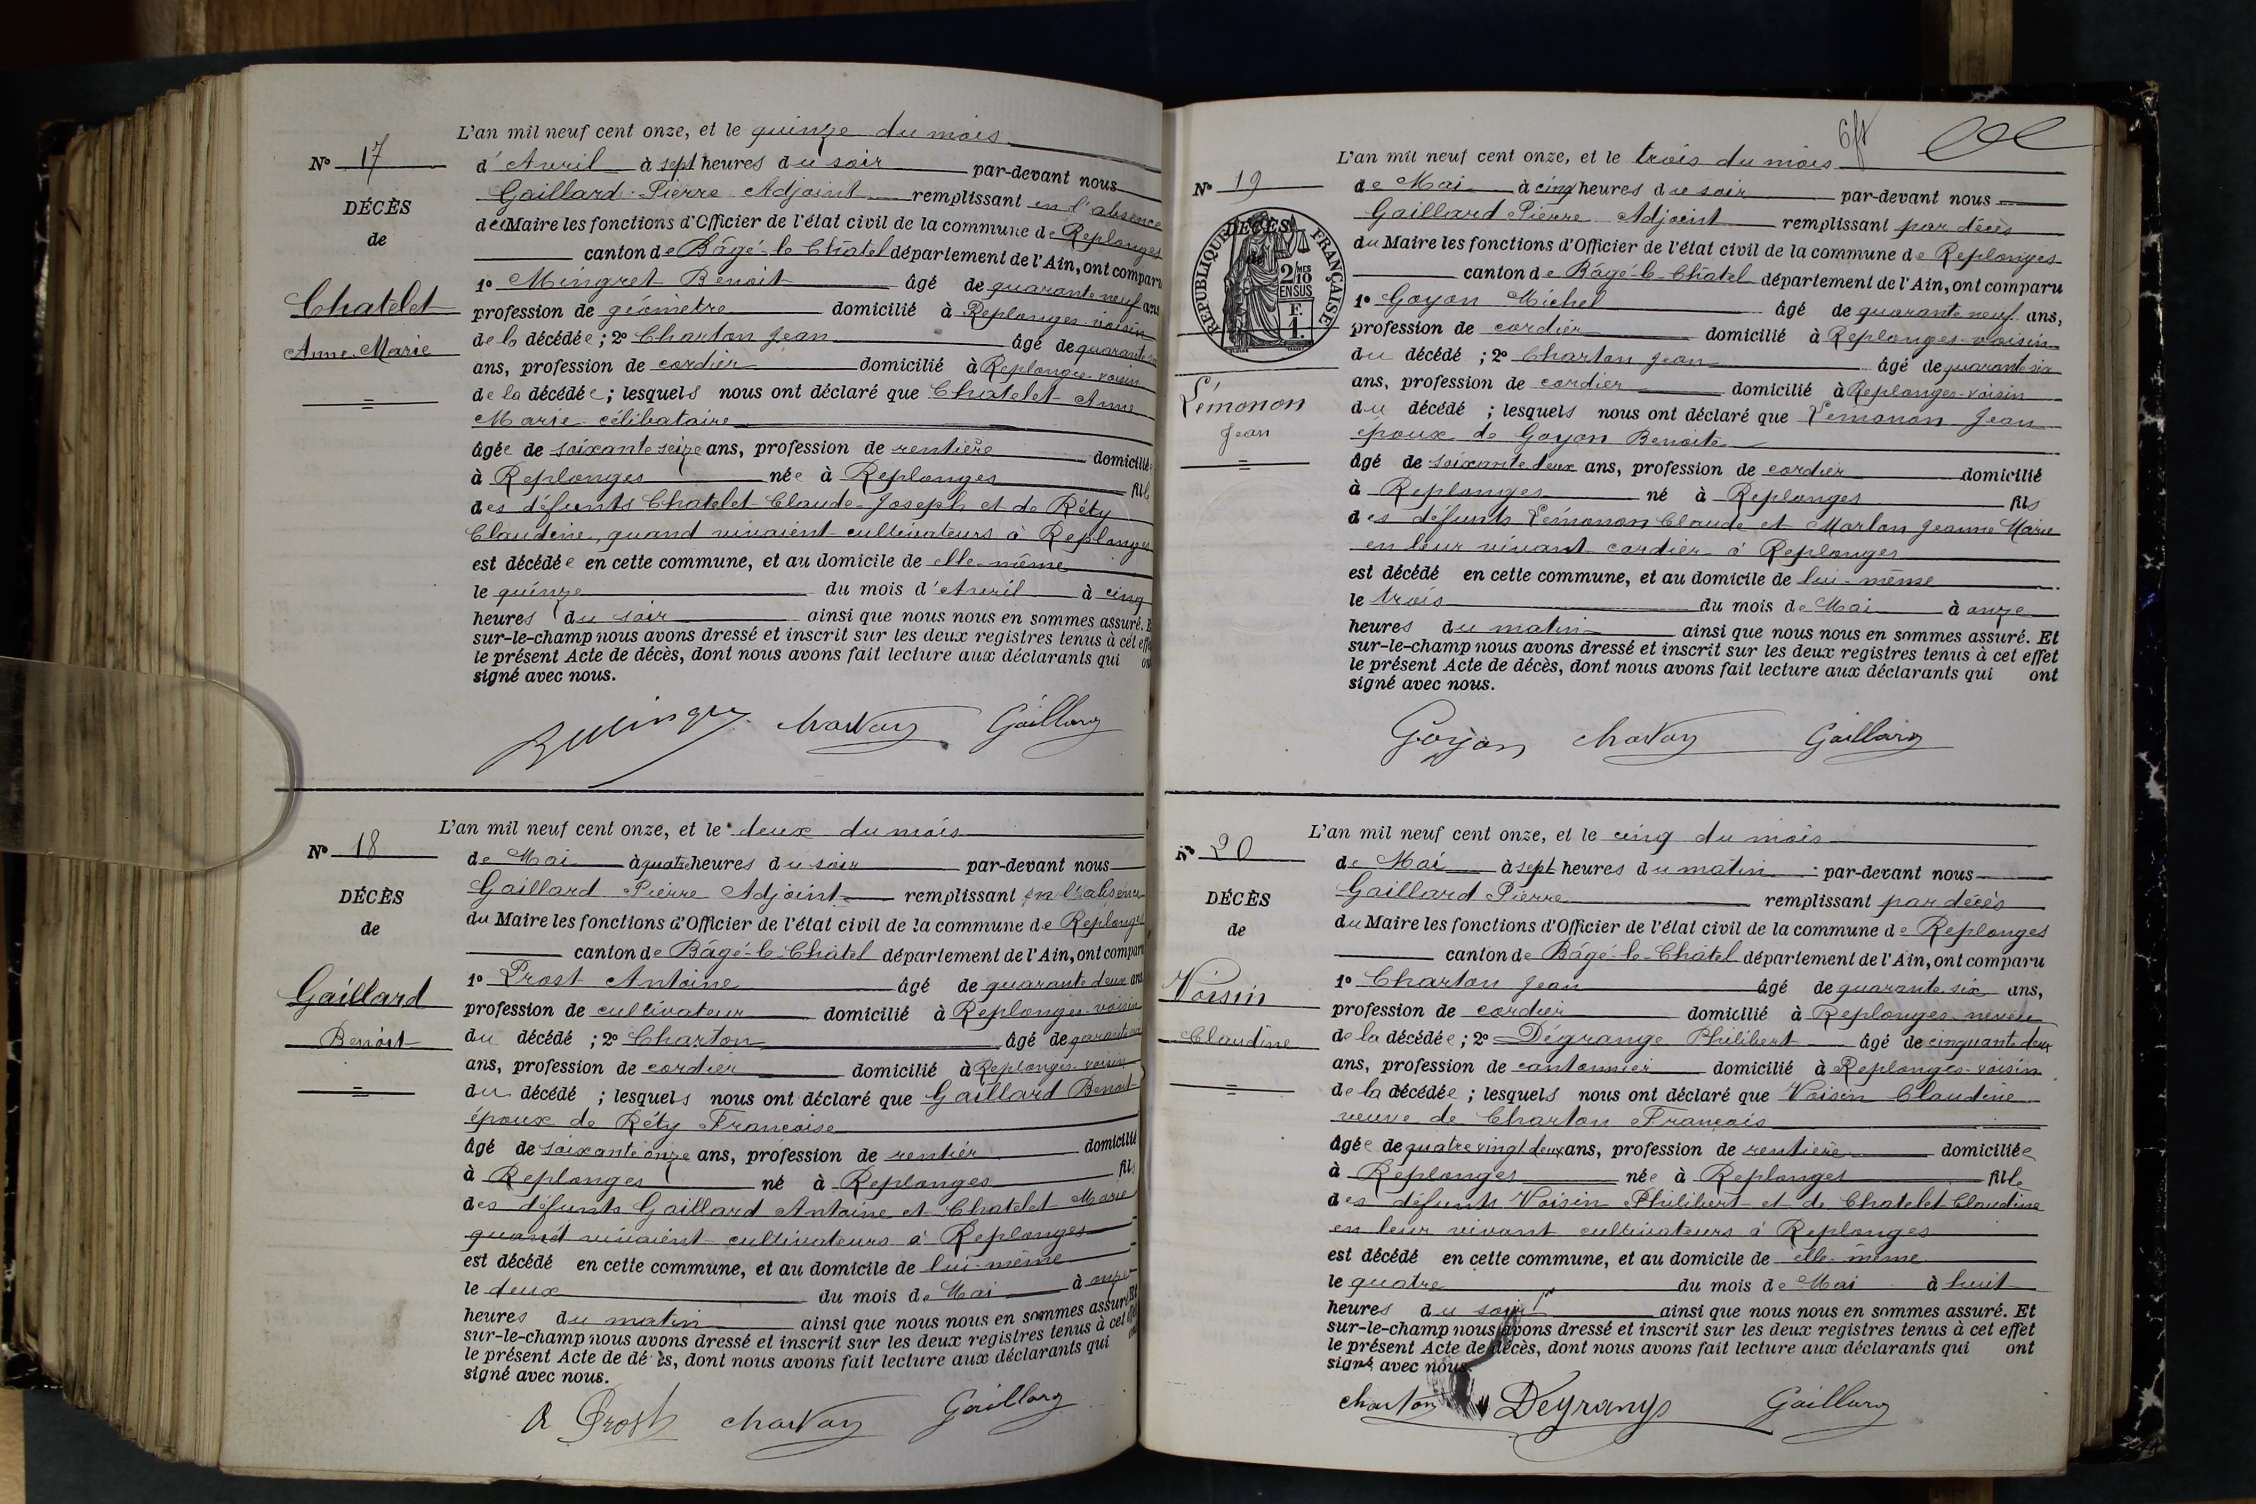 L'an mil neuf cent onze, et le quinze du mois
N° 17
d'Avril à sept heures du soir par-devant nous
Gaillard Pierre Adjoint remplissant en l'absence
DÉCÈS
du Maire les fonctions d'Officier de l'état civil de la commune de Replonges
de
canton de Bâgé-le-Châtel département de l'Ain, ont comparu
1° Mingret Benoit âgé de quarante neuf ans
Chatelet
profession de géomètre domicilié à Replonges voisin
Anne Marie
de la décédée ; 2° Charton Jean âgé de quarante
ans, profession de cordier domicilié à Replonges voisin
de la décédée ; lesquels nous ont déclaré que Chatelet Anne
Marie célibataire
âgée de soixante seize ans, profession de rentière domicilié
à Replonges née à Replonges fille
des défunts Chatelet Claude-Joseph et de Réty
Claudine, quand vivaient cultivateurs à Replonges
est décédée en cette commune, et au domicile de elle-même
le quinze du mois d'Avril à cinq
heures du soir ainsi que nous nous en sommes assuré. E
sur-le-champ nous avons dressé et inscrit sur les deux registres tenus à cet effe
le présent Acte de décès, dont nous avons fait lecture aux déclarants qui on
signé avec nous.
Charton Gaillard
L'an mil neuf cent onze, et le deux du mois
N° 18
de Mai à quatre heures du soir par-devant nous
Gaillard Pierre Adjoint remplissant en l'absence
DÉCÈS
du Maire les fonctions d'Officier de l'état civil de la commune de Replonges
de
canton de Bâgé-le-Châtel département de l'Ain, ont comparu
1° Prost Antoine âgé de quarante deux ans
Gaillard
profession de cultivateur domicilié à Replonges voisin
Benoit
du décédé ; 2° Charton âgé de
ans, profession de cordier domicilié à Replonges voisin
du décédé ; lesquels nous ont déclaré que Gaillard Benoit
époux de Réty Françoise
âgé de soixante onze ans, profession de rentier domicilié
à Replonges né à Replonges fils
des défunts Gaillard Antoine et Chatelet Marie
quand vivaient cultivateurs à Replonges
est décédé en cette commune, et au domicile de lui-même
le deux du mois de Mai à onze
heures du matin ainsi que nous nous en sommes assuré. Et
sur-le-champ nous avons dressé et inscrit sur les deux registres tenus à cet
le présent Acte de décès, dont nous avons fait lecture aux déclarants qui
signé avec nous.
A Prost Charton Gaillard
L'an mil neuf cent onze, et le trois du mois
N° 19
de Mai à cinq heures du soir par-devant nous
Gaillard Pierre Adjoint remplissant par décès
DÉCÈS
RÉPUBLIQUE FRANÇAISE
2 MES
10
EN SUS
F.
1
du Maire les fonctions d'Officier de l'état civil de la commune de Replonges
canton de Bâgé-le-Châtel département de l'Ain, ont comparu
1° Goyon Michel âgé de quarante neuf ans,
profession de cordier domicilié à Replonges voisin
du décédé ; 2° Charton Jean âgé de quarante six
Lémonon
Jean
ans, profession de cordier domicilié à Replonges voisin
du décédé ; lesquels nous ont déclaré que Lémonon Jean
époux de Goyon Benoite
âgé de soixante deux ans, profession de cordier domicilié
à Replonges né à Replonges fils
des défunts Lémonon Claude et Morlon Jeanne Marie
en leur vivant cordier à Replonges
est décédé en cette commune, et au domicile de lui-même
le trois du mois de Mai à onze
heures du matin ainsi que nous nous en sommes assuré. Et
sur-le-champ nous avons dressé et inscrit sur les deux registres tenus à cet effet
le présent Acte de décès, dont nous avons fait lecture aux déclarants qui ont
signé avec nous.
Goyon Charton Gaillard
L'an mil neuf cent onze, et le cinq du mois
N° 20
de Mai à sept heures du matin par-devant nous
Gaillard Pierre remplissant par décès
DÉCÈS
du Maire les fonctions d'Officier de l'état civil de la commune de Replonges
de
canton de Bâgé-le-Châtel département de l'Ain, ont comparu
1° Charton Jean âgé de quarante six ans,
Voisin
profession de cordier domicilié à Replonges neveu
Claudine
de la décédée ; 2° Dégrange Philibert âgé de cinquante deux
ans, profession de cantonnier domicilié à Replonges voisin
de la décédée ; lesquels nous ont déclaré que Voisin Claudine
veuve de Charton François
âgée de quatre vingt deux ans, profession de rentière domiciliée
à Replonges née à Replonges fille
des défunts Voisin Philibert et de Chatelet Claudine
en leur vivant cultivateurs à Replonges
est décédé en cette commune, et au domicile de elle-même
le quatre du mois de Mai à huit
heures du soir ainsi que nous nous en sommes assuré. Et
sur-le-champ nous avons dressé et inscrit sur les deux registres tenus à cet effet
le présent Acte de décès, dont nous avons fait lecture aux déclarants qui ont
signé avec nous.
Charton Degrange Gaillard